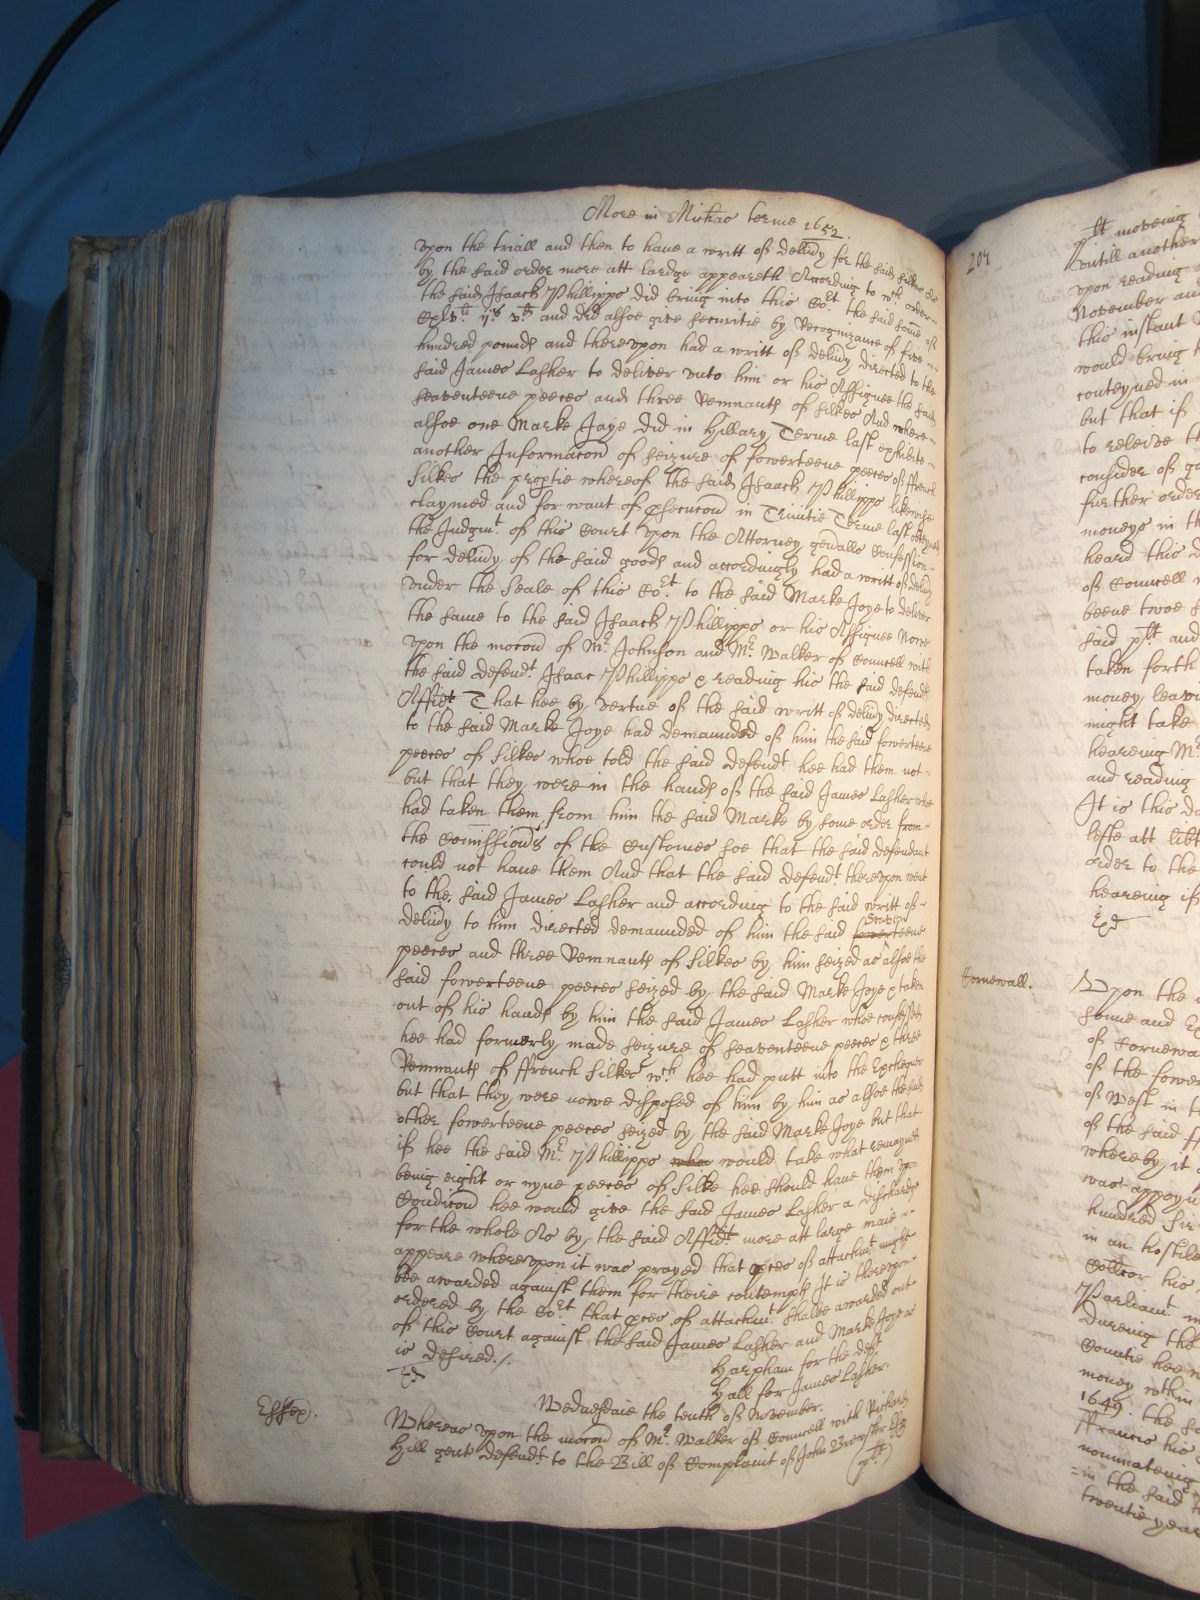 More in Michas terme 1652.
vpon the triall and then to have a writt of deliu͡y for the said silkes As
by the said order more att lardge appeareth According to wch order
the said Isaack Phillippo did bring into this Cort. the said some of
and did alsoe give securitie by Recognizance of five
hundred pounds and therevpon had a writt of deliu͡y directed to the
said James Lasher to deliver vnto him or his Assignee the said
seaventeene peeces and three Remnants of silkes And where
alsoe one Marke Joye did in Hillary Terme last exhibite
another Informacon of seizure of fowerteene peeces of ffrench
Silkes the proptie whereof the said Isaack Phillippo likewise
claymed and for want of psecucon in Trinitie Terme last obteyned
the Judgmt. of this Court vpon the Attorney gen̄alls Confession
for deliu͡y of the said goods and accordingly had a writt of deliu͡y
vnder the Seale of this Cort. to the said Marke Joye to deliver
the same to the said Isaack Phillippo or his Assignee Nowe
vpon the mocon of Mr. Johnson and Mr. Walker of Councell with
the said defendt. Isaac Phillippo & reading his the said defendts
Affidt That hee by vertue of the said writt of deliu͡y directed
to the said Marke Joye had demaunded of him the said fowerteene
peeces of silkes whoe told the said defendt. hee had them not
but that they were in the hands of the said James Lasher whoe
had taken them from him the said Marke by some order from
the Comissionrs of the Customes soe that the said defendant
could not have them And that the said defendt. therevpon went
to the said James Lasher and according to the said writt of
deliu͡y to him directed demaunded of him the said fowerteene seaven
peeces and three Remnants of silkes by him seized as alsoe the
said fowerteene peeces seized by the said Marke Joye & taken
out of his hands by him the said James Lasher whoe confessed
hee had formerly made seizure of seaventeene peeces & three
Remnants of ffrench Silkes wch. hee had putt into the Exchequer
but that they were nowe disposed of him by him as alsoe the said
other fowerteene peeces seized by the said Marke Joye but that
if hee the said Mr. Phillippo would take what remayned
being eight or nyne peeces of Silke hee should have them vpon
Condicon hee would give the said James Lasher a dischardge
for the whole As by the said Affidt. more att large maie
appeare wherevpon it was prayed that pces of attachmt. might
bee awarded against them for theire contempts It is therevpon
ordered by the Cort. that pces of attachmt. shalbe awarded out
of this Court against the said James Lasher and Marke Joye as
is desired./.
Harpham for the deft
Hall for James Lasher.
Wednesdaie the tenth of November.
Essex.
Whereas vpon the mocon of Mr. Walker of Councell with Richard
Hill gent defendt. to the Bill of Complaint of John Brewster Esq
plt
204
plt moveing
vntill another
vpon reading
November and
this instant
would bring
conteyned in
but that if
to receive th
consider of
further order
moneys in th
heard this
of Councell
beene twoe
said plt and
taken forth
money
might take
heareing Mr
and reading
It is this
lefte att libt
order to the
heareing if
Cornewall.
Vpon the
of Cornewa
of the fower
of West in
of the said
whereby it
was appoyn
hundred
in an hostile
his
Parliamt.
Dureing the
Countie hee
money wthin
1649. the
ffrancis his
nominateing
in the said
twentie yea